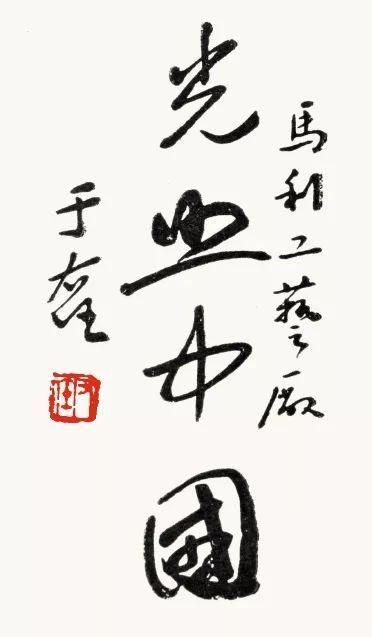 馬利工藝廠
光照中國
于右任